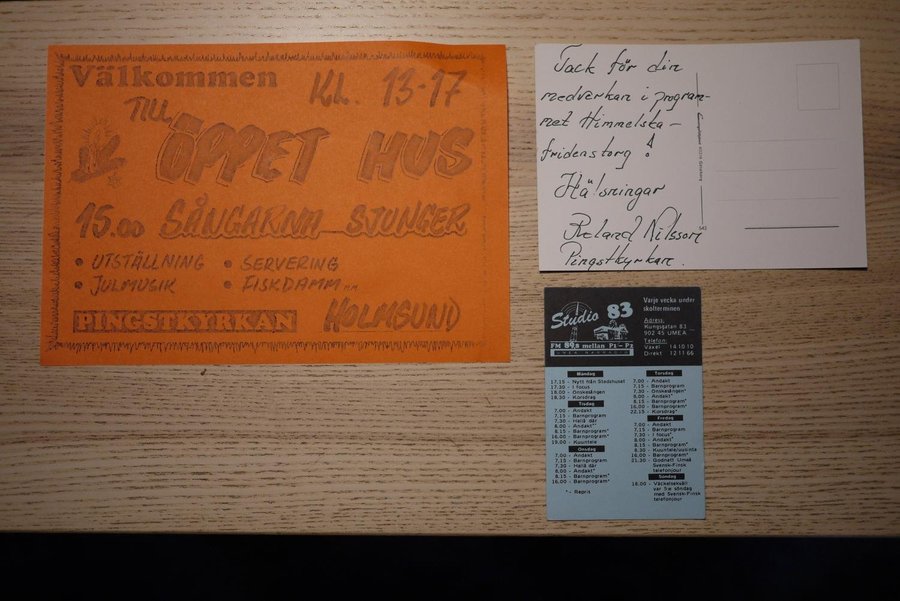 Välkommen
KL. 13-17
TILL
ÖPPET HUS
15.00 SÅNGARNA SJUNGER
• UTSTÄLLNING • SERVERING
• JULMUSIK • FISKDAMM m.m.
PINGSTKYRKAN HOLMSUND
Tack för din
medverkan i program-
met Himmelska-
fridens torg!
Hälsningar
Roland Nilsson
Pingstkyrkan.
Studio 83
FM 89,8 mellan P1-P2
Varje vecka under
skolterminen
Adress:
Kungsgatan 83
902 45 UMEÅ
Telefon:
Växel 14 10 10
Direkt 12 11 66
Måndag
17.15 - Nytt från Stadshuset
17.30 - I focus
18.00 - Önskesången
18.30 - Korsdrag
Tisdag
7.00 - Andakt
8.15 - Barnprogram
7.30 - Hallå där
8.00 - Andakt*
8.15 - Barnprogram*
16.00 - Barnprogram*
19.00 - Kuuntele
Onsdag
7.00 - Andakt
7.15 - Barnprogram
7.30 - Hallå där
8.00 - Andakt*
8.15 - Barnprogram*
16.00 - Barnprogram*
* - Repris
Torsdag
7.00 - Andakt
7.15 - Barnprogram
7.30 - Önskesången*
8.00 - Andakt*
8.15 - Barnprogram*
16.00 - Barnprogram*
22.15 - Korsdrag*
Fredag
7.00 - Andakt
7.15 - Barnprogram
7.30 - I focus*
8.00 - Andakt*
8.15 - Barnprogram*
8.30 - Kuuntele/uusinta
16.00 - Barnprogram*
21.30 - Godnatt Umeå
Svensk-Finsk
telefonjour
Söndag
18.00 - Väckelsekväll
var fje söndag
med Svensk-Finsk
telefonjour